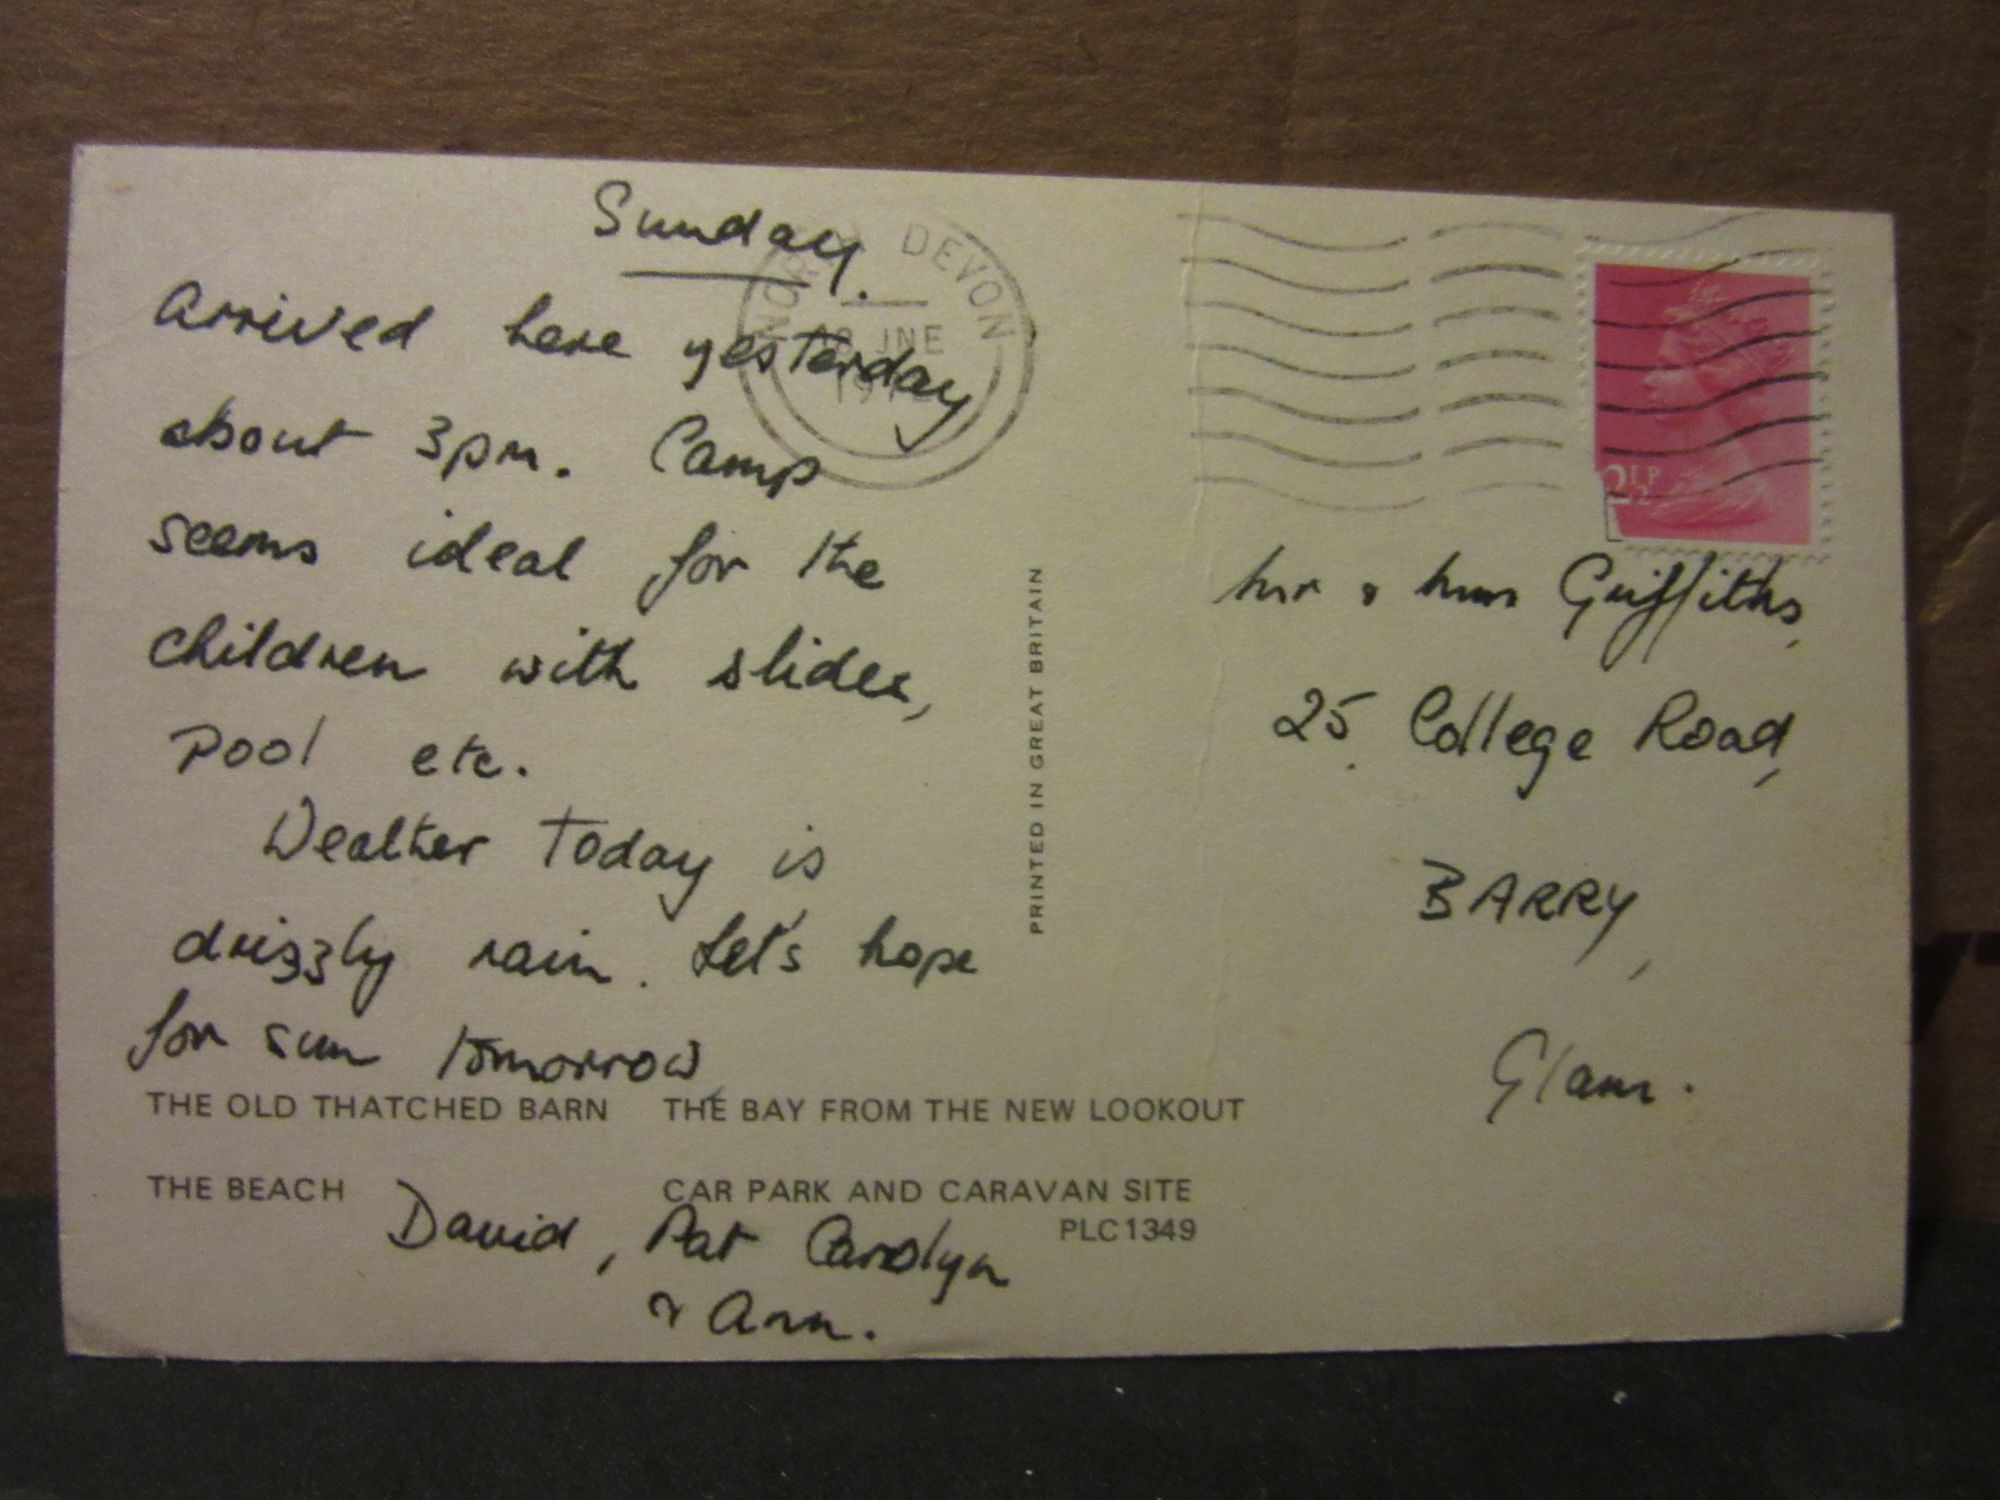 Sunday.
Arrived here yesterday
about 3pm. Camp
seems ideal for the
children with slides,
pool etc.
Weather today is
drizzly rain. Let's hope
for sun tomorrow
THE OLD THATCHED BARN THE BAY FROM THE NEW LOOKOUT
THE BEACH CAR PARK AND CARAVAN SITE
PLC1349
David, Pat Carolyn
& Ann.
PRINTED IN GREAT BRITAIN
NORTH DEVON
JNE
2½P
Mr & Mrs Griffiths,
25 College Road,
BARRY,
Glam.